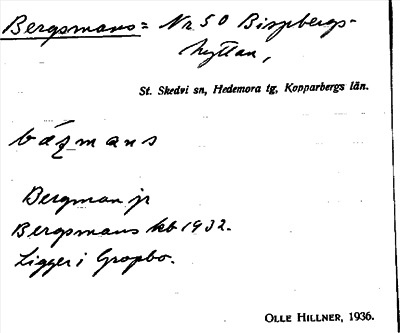 Bergsmans = Nr 50 Bispbergs-
hyttan,
St. Skedvi sn, Hedemora tg, Kopparbergs län.
bæ̀ʒmans
Bergman jr
Bergsmans kb 1932.
Ligger i Gropbo.
OLLE HILLNER, 1936.